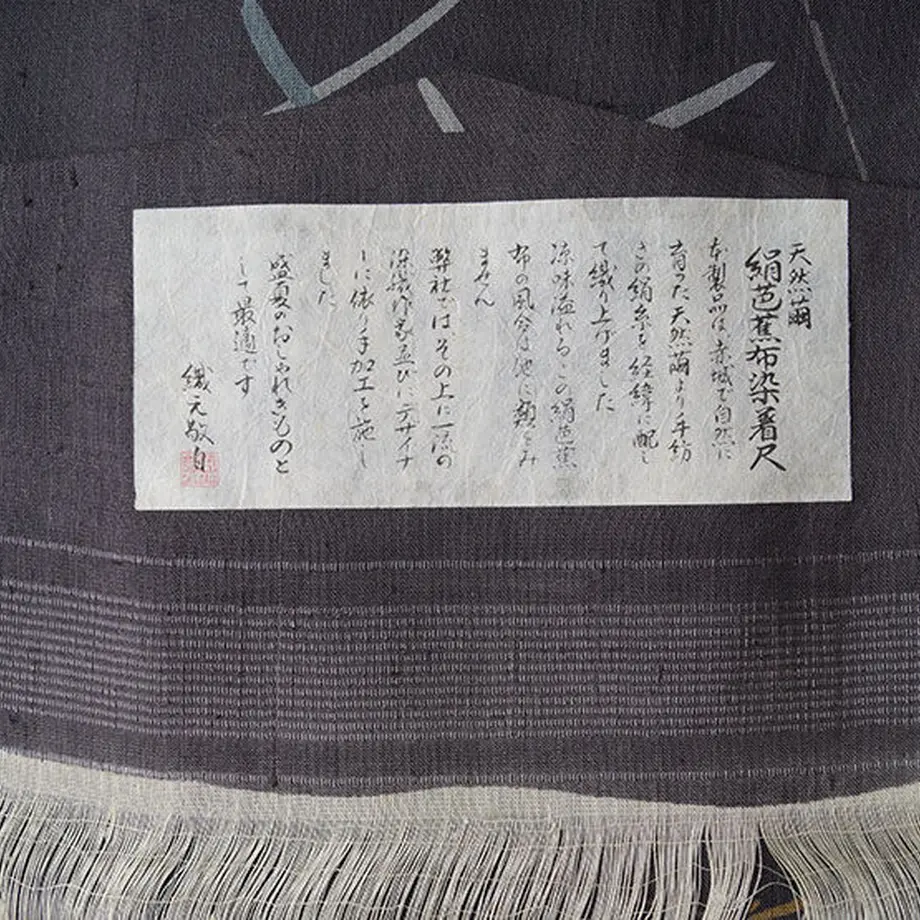 天然繭
絹芭蕉布染着尺
本製品は、赤城で自然に
育った天然繭より手紡
きの絹糸を経緯に配し
て織り上げました
涼味溢れるこの絹芭蕉
布の風合は他に類をみ
ません
弊社では、その上に一流の
染織作家並びにデザイナ
ーに依り手加工を施し
ました
盛夏のおしゃれきものと
して最適です
織元敬白